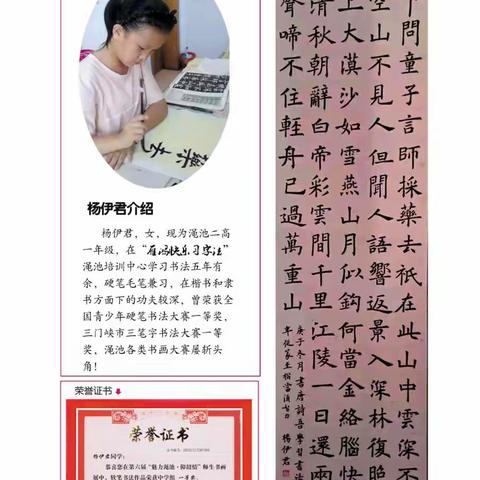 杨伊君介绍
杨伊君，女，现为渑池二高
一年级，在“雁冯快乐习字法”
渑池培训中心学习书法五年有
余，硬笔毛笔兼习，在楷书和隶
书方面下的功夫较深，曾荣获全
国青少年硬笔书法大赛一等奖，
三门峡市三笔字书法大赛一等
奖，渑池各类书画大赛屡斩头
角！
荣誉证书
荣誉证书
杨伊君同学：
恭喜您在第六届“魅力渑池·仰韶
师生书画
展中，软笔书法作品荣获中学组 一等奖
下問童子言師採藥去衹在此山中雲深不
空山不見人但聞人語響返景入深林復照
上大漠沙如雪燕山月似鉤何當金絡腦快
清秋朝辭白帝彩雲間千里江陵一日還兩
聲啼不住輕舟已過萬重山
庚子冬月書唐詩
學習書法
楊伊君